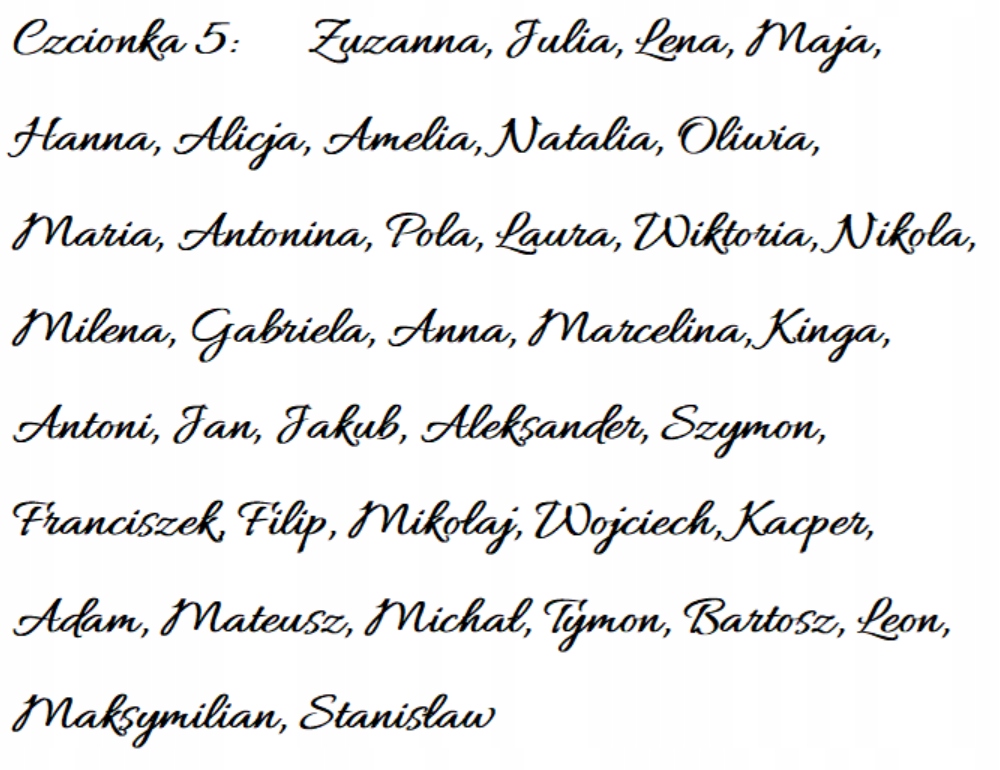 Czcionka 5: Zuzanna, Julia, Lena, Maja,
Hanna, Alicja, Amelia, Natalia, Oliwia,
Maria, Antonina, Pola, Laura, Wiktoria, Nikola,
Milena, Gabriela, Anna, Marcelina, Kinga,
Antoni, Jan, Jakub, Aleksander, Szymon,
Franciszek, Filip, Mikołaj, Wojciech, Kacper,
Adam, Mateusz, Michał, Tymon, Bartosz, Leon,
Maksymilian, Stanisław